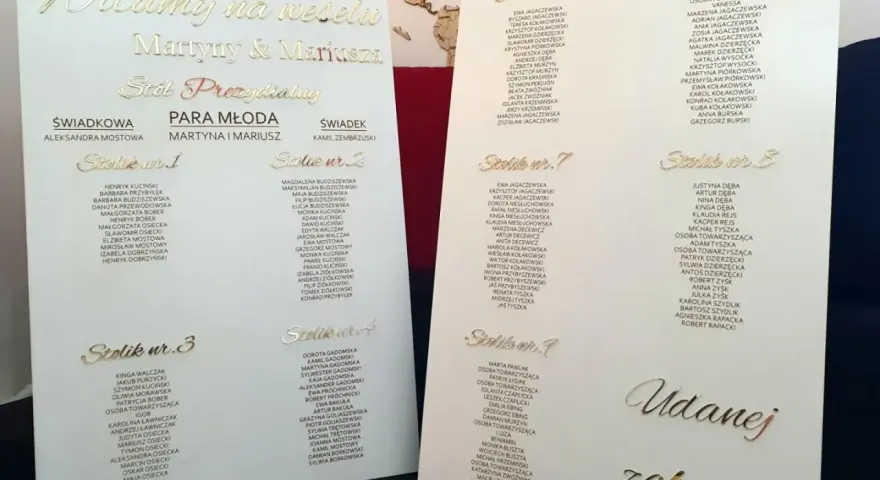 Witamy na weselu
Martyny & Mariusza
Stół Prezydialny
ŚWIADKOWA
ALEKSANDRA MOSTOWA
PARA MŁODA
MARTYNA I MARIUSZ
ŚWIADEK
KAMIL ZEMBRZUSKI
Stolik nr.1
HENRYK KUCIŃSKI
BARBARA PRZYBYŁEK
BARBARA BUDZISZEWSKA
DANUTA PRZEWODOWSKA
MAŁGORZATA BOBER
HENRYK BOBER
MAŁGORZATA OSIECKI
SŁAWOMIR OSIECKI
ELŻBIETA MOSTOWA
MIROSŁAW MOSTOWY
IZABELA DOBRZYŃSKA
HENRYK DOBRZYŃSKI
Stolik nr.2
MAGDALENA BUDZISZEWSKA
MAKSYMILIAN BUDZISZEWSKI
MAJA BUDZISZEWSKA
FILIP BUDZISZEWSKI
ŁUCJA BUDZISZEWSKA
MONIKA KUCIŃSKA
ADAM KUCIŃSKI
DAWID KUCIŃSKI
EDYTA WALCZAK
JAROSŁAW WALCZAK
EWA MOSTOWA
GRZEGORZ MOSTOWY
MONIKA KUCIŃSKA
PAWEŁ KUCIŃSKI
FRANIO KUCIŃSKI
IZABELA ZIÓŁKOWSKA
ANDRZEJ ZIÓŁKOWSKI
FILIP ZIÓŁKOWSKI
TOMEK ZIÓŁKOWSKI
KONRAD PRZYBYŁEK
Stolik nr.3
KINGA WALCZAK
JAKUB PURZYCKI
SZYMON KUCIŃSKI
OLIWIA MORAWSKA
PATRYCJA BOBER
OSOBA TOWARZYSZĄCA
IGOR
KAROLINA ŁAWNICZAK
ANDRZEJ ŁAWNICZAK
JUDYTA OSIECKA
MARIUSZ OSIECKI
TYMON OSIECKI
ALEKSANDRA OSIECKA
MARCIN OSIECKI
OSKAR OSIECKI
MAJA OSIECKA
Stolik nr.4
DOROTA GADOMSKA
KAMIL GADOMSKI
MARTYNA GADOMSKA
SYLWESTER GADOMSKI
KAJA GADOMSKA
ALEKSANDER GADOMSKI
EWA PRÓCHNICKA
ROBERT PRÓCHNICKI
EWA BAKUŁA
ARTUR BAKUŁA
GRAŻYNA GOLJASZEWSKA
PIOTR GOLJASZEWSKI
SYLWIA TRĘTOWSKA
MICHAŁ TRĘTOWSKI
JOANNA MOSTOWA
KAMIL MOSTOWY
DAMIAN BORKOWSKI
SYLWIA BORKOWSKA
EWA JAGACZEWSKA
RYSZARD JAGACZEWSKI
TERESA KOŁAKOWSKA
KRZYSZTOF KOŁAKOWSKI
MARZENA DZIERZĘCKA
SŁAWOMIR DZIERZĘCKI
KRYSTYNA PIÓRKOWSKA
AGNIESZKA DĘBA
ANDRZEJ DĘBA
ELŻBIETA MURZYN
KRZYSZTOF MURZYN
DOROTA KRASIŃSKA
SZYMON PERDJON
BEATA ŻWOŹNIAK
JACEK ŻWOŹNIAK
JOLANTA KRZEMIŃSKA
JERZY KRZEMIŃSKI
MARZENA JAGACZEWSKA
ZDZISŁAW JAGACZEWSKI
VANESSA
MARZENA JAGACZEWSKA
ADRIAN JAGACZEWSKI
ANIA JAGACZEWSKA
ZOSIA JAGACZEWSKA
AGATKA JAGACZEWSKA
MALWINA DZIERZĘCKA
MAREK DZIERZĘCKI
NATALIA WYSOCKA
KRZYSZTOF WYSOCKI
MARTYNA PIÓRKOWSKA
PRZEMYSŁAW PIÓRKOWSKI
EWA KOŁAKOWSKA
KAROL KOŁAKOWSKI
KONRAD KOŁAKOWSKI
KUBA KOŁAKOWSKI
ANNA BURSKA
GRZEGORZ BURSKI
Stolik nr.7
EWA JAGACZEWSKA
KRZYSZTOF JAGACZEWSKI
KACPER JAGACZEWSKI
DOROTA NIESŁUCHOWSKA
RAFAŁ NIESŁUCHOWSKI
KINGA NIESŁUCHOWSKA
KLAUDIA NIESŁUCHOWSKA
MARZENA DECEWICZ
ARTUR DECEWICZ
ANITA DECEWICZ
MARIOLA KOŁAKOWSKA
WIESŁAW KOŁAKOWSKI
WIKTOR KOŁAKOWSKI
BARTOSZ KOŁAKOWSKI
IWONA PRZYBYSZEWSKA
ROBERT PRZYBYSZEWSKI
JAŚ PRZYBYSZEWSKI
RENATA TYSZKA
ANDRZEJ TYSZKA
JAŚ TYSZKA
Stolik nr.8
JUSTYNA DĘBA
ARTUR DĘBA
NINA DĘBA
KINGA DĘBA
KLAUDIA REJS
KACPER REJS
MICHAŁ TYSZKA
OSOBA TOWARZYSZĄCA
ADAM TYSZKA
OSOBA TOWARZYSZĄCA
PATRYK DZIERZĘCKI
SYLWIA DZIERZĘCKA
ANTOŚ DZIERZĘCKI
ROBERT ZYŚK
ANNA ZYŚK
JULKA ZYŚK
KAROLINA SZYDLIK
BARTOSZ SZYDLIK
AGNIESZKA RAPACKA
ROBERT RAPACKI
Stolik nr.9
MARTA PAWLAK
OSOBA TOWARZYSZĄCA
PATRYK ŁYSIAK
OSOBA TOWARZYSZĄCA
JOLANTA CZAPLICKA
LESZEK CZAPLICKI
EMILIA EBING
GRZEGORZ EBING
DAMIAN MURZYN
OSOBA TOWARZYSZĄCA
LUIZA
BENIAMIN
MONIKA BUSZTA
WOJCIECH BUSZTA
MICHAŁ KRZEMIŃSKI
OSOBA TOWARZYSZĄCA
KATARZYNA ŻWOŹNIAK
Udanej